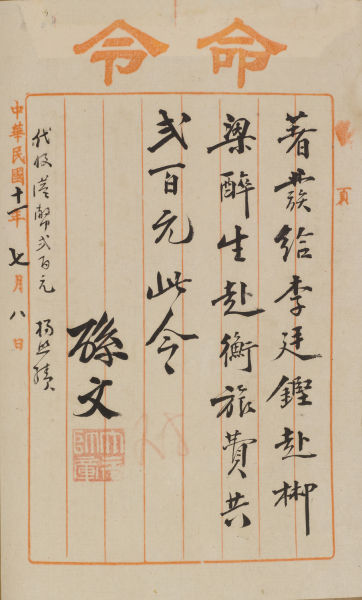 命令
頁
著發給李廷鏗赴郴
梁醉生赴衡旅費共
弍百元此令
孫文
大元帥章
代收港幣弍百元 楊熙績
中華民國十二年七月八日